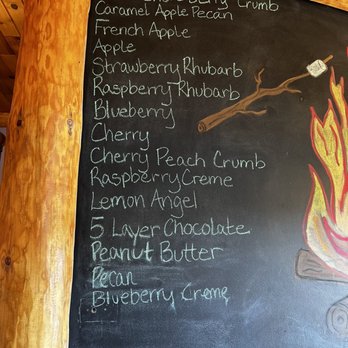 Crumb
Caramel Apple Pecan
French Apple
Apple
Strawberry Rhubarb
Raspberry Rhubarb
Blueberry
Cherry
Cherry Peach Crumb
Raspberry Creme
Lemon Angel
5 Layer Chocolate
Peanut Butter
Pecan
Blueberry Creme